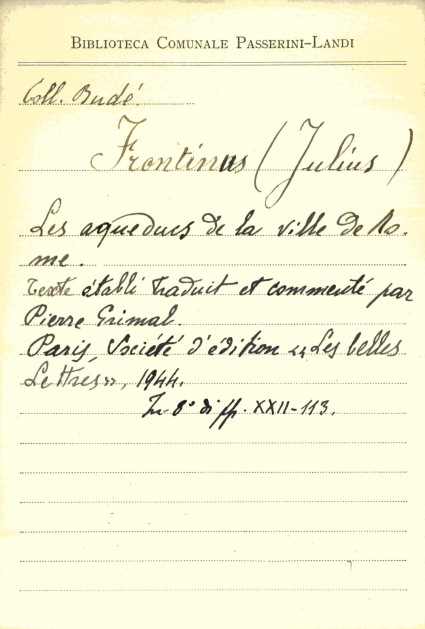 BIBLIOTECA COMUNALE PASSERINI-LANDI
Coll. Budé.
Frontinus (Julius)
Les aqueducs de la ville de Ro-
me.
Texte établi traduit et commenté par
Pierre Grimal.
Paris, Société d'édition «Les belles
Lettres», 1944.
In-8° di pp. XXII-113.